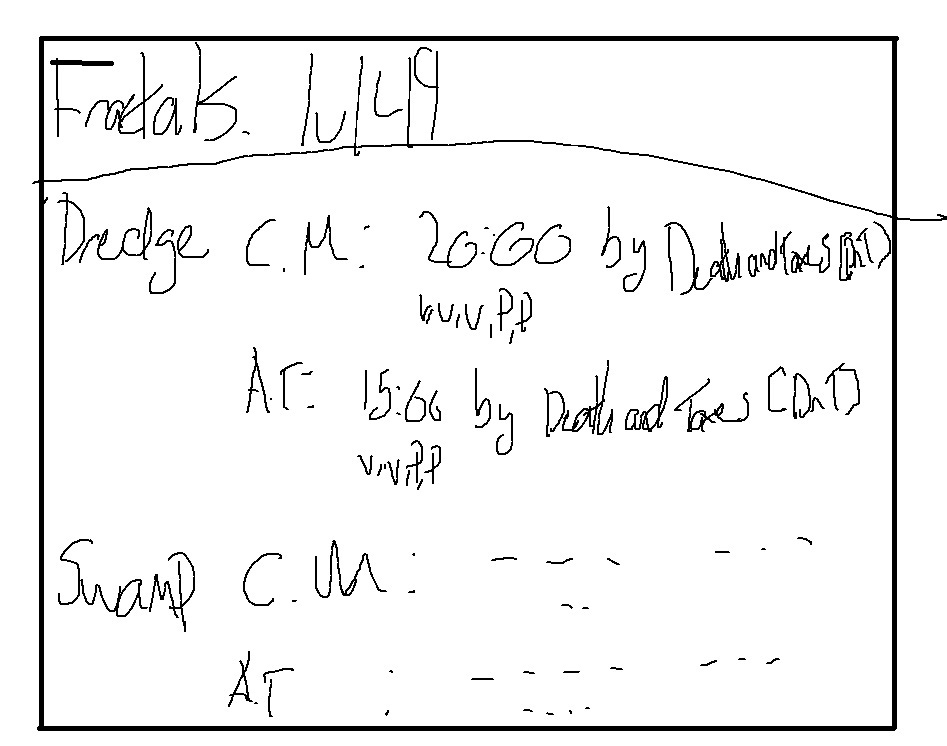 Fractals. lvl 49
Dredge C.M: 20:00 by Death and Taxes [DnT]
V,V,P,P
A.T: 15:00 by Death and Taxes [DnT]
V,V,P,P
Swamp C.M:
A.T :